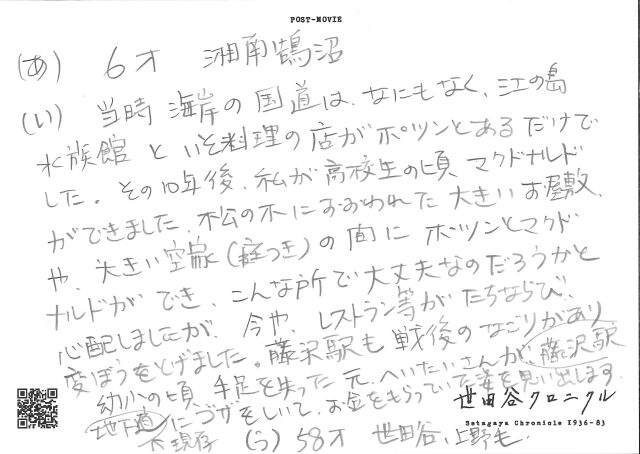 POST-MOVIE
(あ) 6才 湘南鵠沼
(い) 当時 海岸の国道は、なにもなく、江の島
水族館 と いそ料理の店がポツンとあるだけで
した。その10年後、私が高校生の頃 マクドナルド
ができました。松の木におおわれた大きいお屋敷
や、大きい空家(庭つき)の間に ポツンとマクド
ナルドが でき、こんな所で大丈夫なのだろうかと
心配しましたが、今や、レストラン等がたちならび、
変ぼうをとげました。藤沢駅も戦後のなごりがあり
幼少の頃 手足を失った元、へいたいさんが、藤沢駅
地下道にゴザをしいて、お金をもらっていた姿を見い出します。
不現存 (う) 58才 世田谷、上野毛。
世田谷クロニクル
Setagaya Chronicle 1936-83